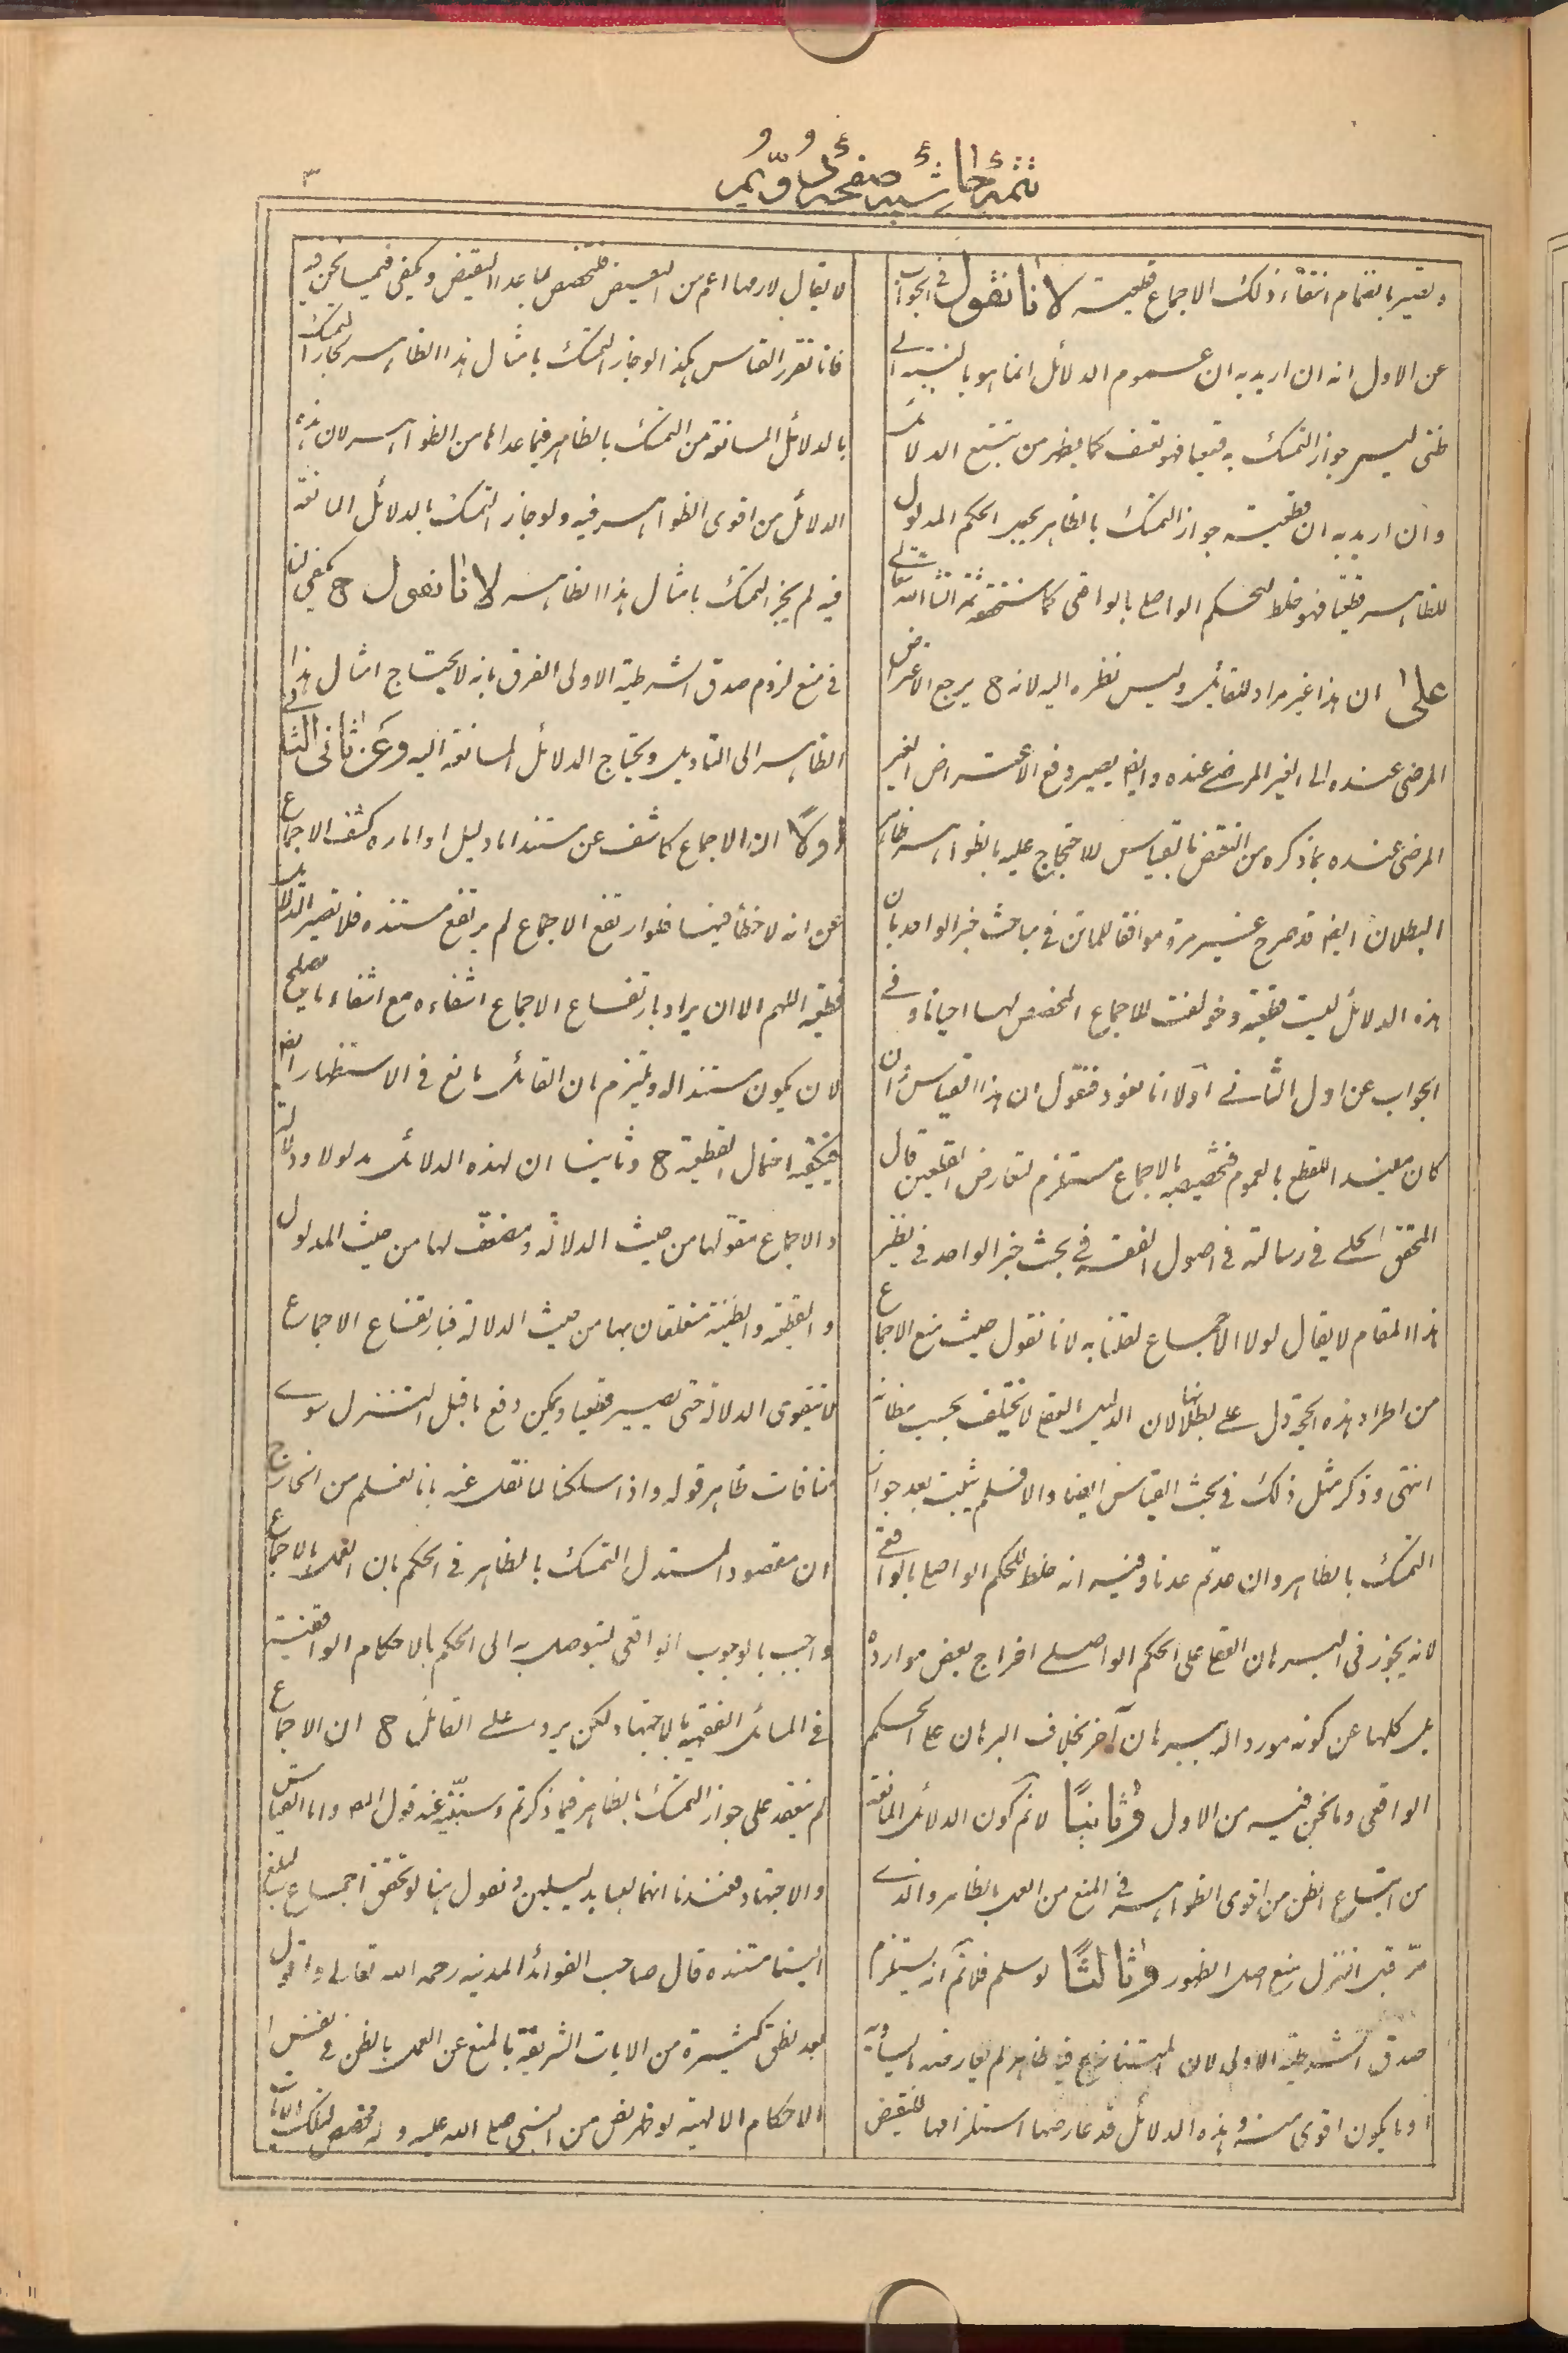 تتمة حاشية صفحة اول و يم
٣
و تعتبر بانضمام انتفاء ذلك الاجماع قطعية لانا نقول في الجواب
عن الاول انه ان اريد به ان عموم الدلائل انما هو بالنسبة الى
ظني ليس جواز التمسك به قطعيا فهو تعسف كما يظهر من تتبع الدلائل
و ان اريد به ان قطعية جواز التمسك بالظاهر يجعل الحكم المدلول
للظاهر قطعيا فهو خلط للحكم الواصلي بالواقعي كما ستحققه ثمة انشاء الله تعالى
على ان هذا غير مراد للقائل و ليس نظره اليه لانه ح يرجع الاعتراض
المرضي عنده الى الغير المرضي عنده و ايضا يصير دفع الاعتراض الغير
المرضي عنده بما ذكره من النقض بالقياس للاحتجاج عليه بالظواهر ظاهر
البطلان ايضا قد صرح غير مرة موافقا للماتن في مباحث خبر الواحد بان
هذه الدلائل ليست قطعية و خولفت للاجماع المخصص لها احيانا و في
الجواب عن اول الثاني اولا انا نعود فنقول ان هذا القياس ان
كان مفيدا للقطع بالعموم فتخصيصه بالاجماع مستلزم لتعارض القطعين قال
المحقق الحلي في رسالته في اصول الفقه في بحث خبر الواحد في نظير
هذا المقام لا يقال لولا الاجماع لقلنا به لانا نقول حيث منع الاجماع
من اطراد هذه الحجة دل على بطلانها لان الدليل القطعي لا يختلف بحسب مظانه
انتهى و ذكر مثل ذلك في بحث القياس ايضا و الا فلم يثبت بعد جواز
التمسك بالظاهر و ان عدتم عدنا و فيه انه خلط للحكم الواصلي بالواقعي
لانه يجوز في البرهان القطعي على الحكم الواصلي اخراج بعض موارده
بل كلها عن كونه مورد البرهان آخر بخلاف البرهان على الحكم
الواقعي و ما نحن فيه من الاول و ثانيا لا نم كون الدلائل المانعة
من اتباع الظن من اقوى الظواهر في المنع من العمل بالظاهر و الذي
مر قبل التنزل منع اصل الظهور و ثالثا لو سلم فلا نم انه يستلزم
صدق الشرطية الاولى لان المتنازع فيه ظاهر لم يعارضه ما يساويه
او ما يكون اقوى منه و هذه الدلائل قد عارضها استلزامها للنقيض
لا يقال لازمها اعم من النقيض فتخصص بما عدا النقيض و يكفي فيما نحن فيه
فانا نقرر القياس هكذا لو جاز التمسك بامثال هذا الظاهر لجاز التمسك
بالدلائل المانعة من التمسك بالظاهر فيما عداها من الظواهر لان هذه
الدلائل من اقوى الظواهر فيه و لو جاز التمسك بالدلائل المانعة
فيه لم يجز التمسك بامثال هذا الظاهر لانا نقول ح يكفي لنا
في منع لزوم صدق الشرطية الاولى الفرق بانه لا يحتاج امثال هذا
الظاهر الى التاويل و يحتاج الدلائل المانعة اليه و عن ثاني الثاني
اولا ان الاجماع كاشف عن مستند اما دليل او امارة و كشف الاجماع
عن انه لا خطأ فيها فلو ارتفع الاجماع لم يرتفع مستنده فلا تصير الدلائل
قطعية اللهم الا ان يراد بارتفاع الاجماع انتفاءه مع انتفاء ما يصلح
لان يكون مستندا له و يلتزم ان القائل مانع في الاستظهار ايضا
فيكفيه احتمال القطعية ح و ثانيا ان لهذه الدلائل مدلولا و دلالة
و الاجماع مقو لها من حيث الدلالة و مضعف لها من حيث المدلول
و القطعية و الظنية متعلقان بها من حيث الدلالة فبارتفاع الاجماع
لا يتقوى الدلالة حتى يصير قطعيا و يمكن دفع ما قبل التنزل سوى
منافات ظاهر قوله و اذا سلكنا لما نقل عنه بانا نعلم من الخارج
ان مقصود المستدل التمسك بالظاهر في الحكم بان العمل بالاجماع
واجب بالوجوب الواقعي ليتوصل به الى الحكم بالاحكام الواقعية
في المسائل الفقهية بالاجتهاد لكن يرد على القائل ح ان الاجماع
لم ينعقد على جواز التمسك بالظاهر فيما ذكرتم و سنبينه عند قول المص و اما القياس
و الاجتهاد فعندنا انهما ليسا بدليلين و نقول هنا لو تحقق اجماع لبلغ
الينا مستنده قال صاحب الفوائد المدنيه رحمه الله تعالى و اقول
بعد نطق كثيرة من الايات الشريفة بالمنع عن العمل بالظن في نفس
الاحكام الالهية لو ظهر نص من النبي صلى الله عليه و اله مخصص لتلك الايات